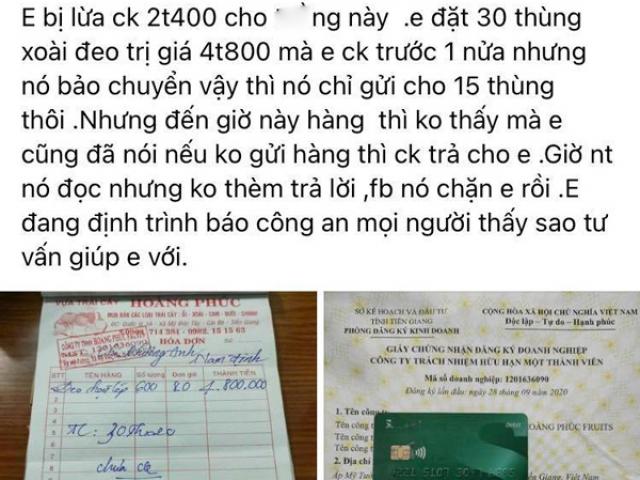 E bị lừa ck 2t400 cho này .e đặt 30 thùng
xoài đeo trị giá 4t800 mà e ck trước 1 nửa nhưng
nó bảo chuyển vậy thì nó chỉ gửi cho 15 thùng
thôi .Nhưng đến giờ này hàng thì ko thấy mà e
cũng đã nói nếu ko gửi hàng thì ck trả cho e .Giờ nt
nó đọc nhưng ko thèm trả lời ,fb nó chặn e rồi .E
đang định trình báo công an mọi người thấy sao tư
vấn giúp e với.
VỰA TRÁI CÂY HOÀNG PHÚC
MUA BÁN CÁC LOẠI TRÁI CÂY : ỔI - XOÀI - CAM - BƯỞI
HÓA ĐƠN
Nam định
STT TÊN HÀNG Số lượng Đơn giá THÀNH TIỀN
600 8.0 4.800.000
SỞ KẾ HOẠCH VÀ ĐẦU TƯ
TỈNH TIỀN GIANG
PHÒNG ĐĂNG KÝ KINH DOANH
CỘNG HÒA XÃ HỘI CHỦ NGHĨA VIỆT NAM
Độc lập - Tự do - Hạnh phúc
GIẤY CHỨNG NHẬN ĐĂNG KÝ DOANH NGHIỆP
CÔNG TY TRÁCH NHIỆM HỮU HẠN MỘT THÀNH VIÊN
Mã số doanh nghiệp: 1201636090
Đăng ký lần đầu: ngày 28 tháng 09 năm 2020
1. Tên công
Tên công
Tên công HOÀNG PHÚC FRUITS
Tên công
2. Địa chỉ
Debit
Ấp Mỹ Giang, Việt Nam